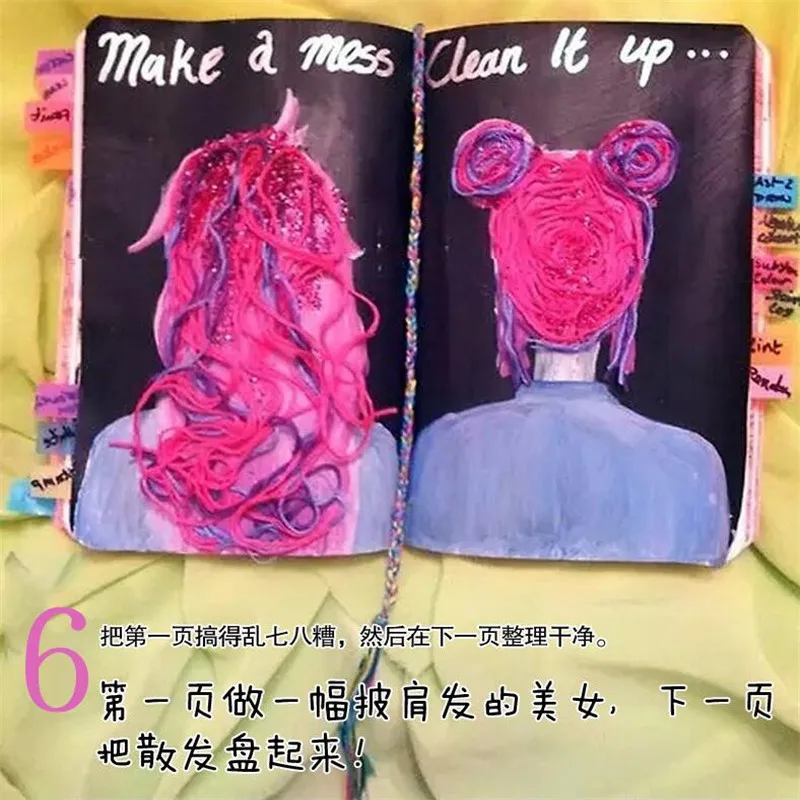 Make a mess Clean It up...
6
把第一页搞得乱七八糟，然后在下一页整理干净。
第一页做一幅披肩发的美女，下一页
把散发盘起来！